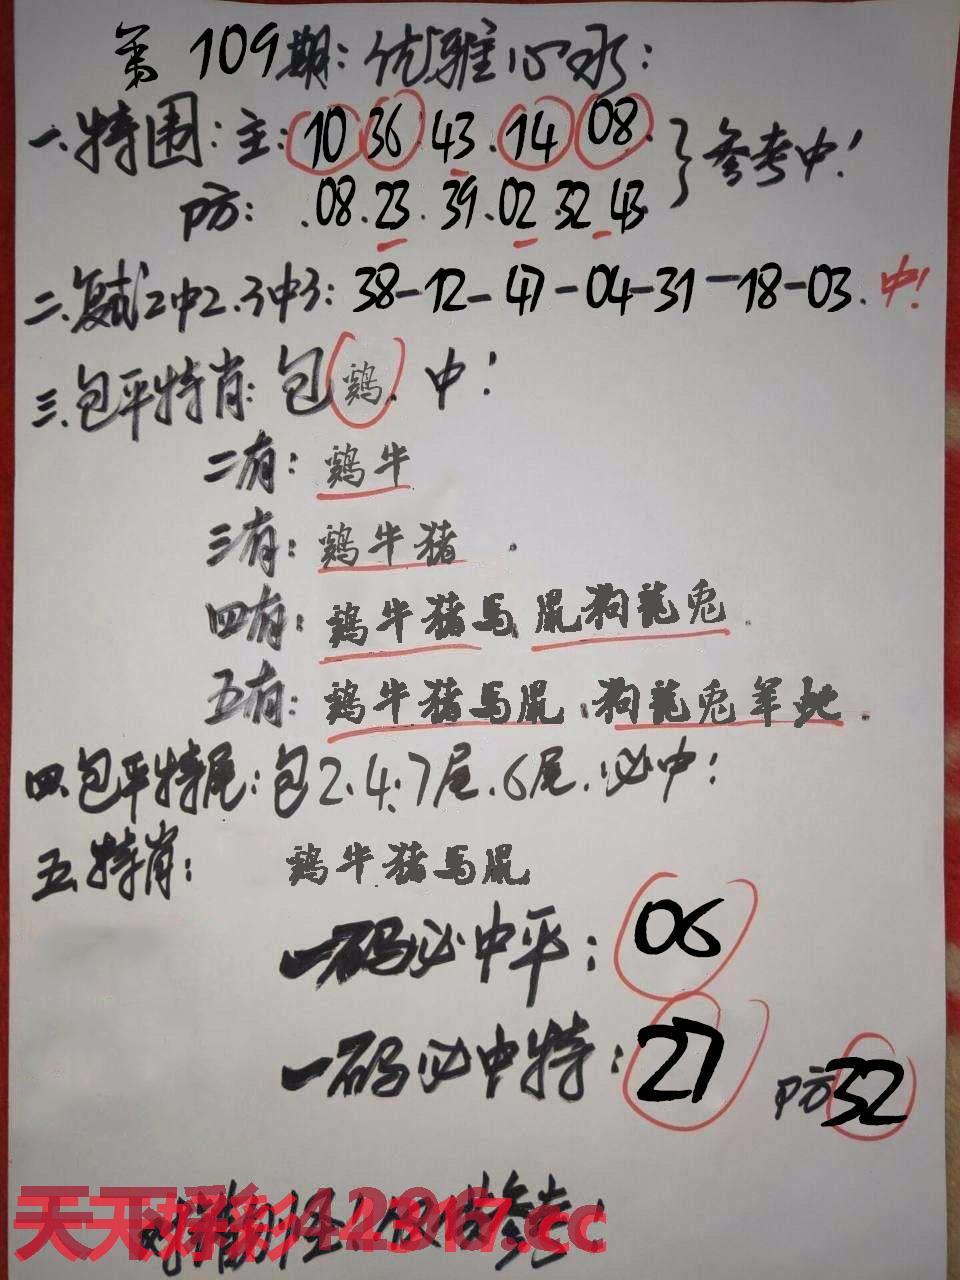 第109期:优雅心水:
一.特围:主:10 36 43.14 08.}参考中!
防:.08.23.39.02.32.43.
二.复试2中2.3中3:38-12-47-04-31-18-03.中!
三.包平特肖:包鸡.中!
二有:鸡牛
三有:鸡牛猪.
四有:鸡牛猪马.鼠狗龍兔.
五有:鸡牛猪马鼠.狗龍兔羊蛇.
四.包平特尾:包2.4.7尾.6尾.必中!
五.特肖:鸡牛猪马鼠
一码必中平:06
一码必中特:27 防32
天下好彩 .cc
参考!